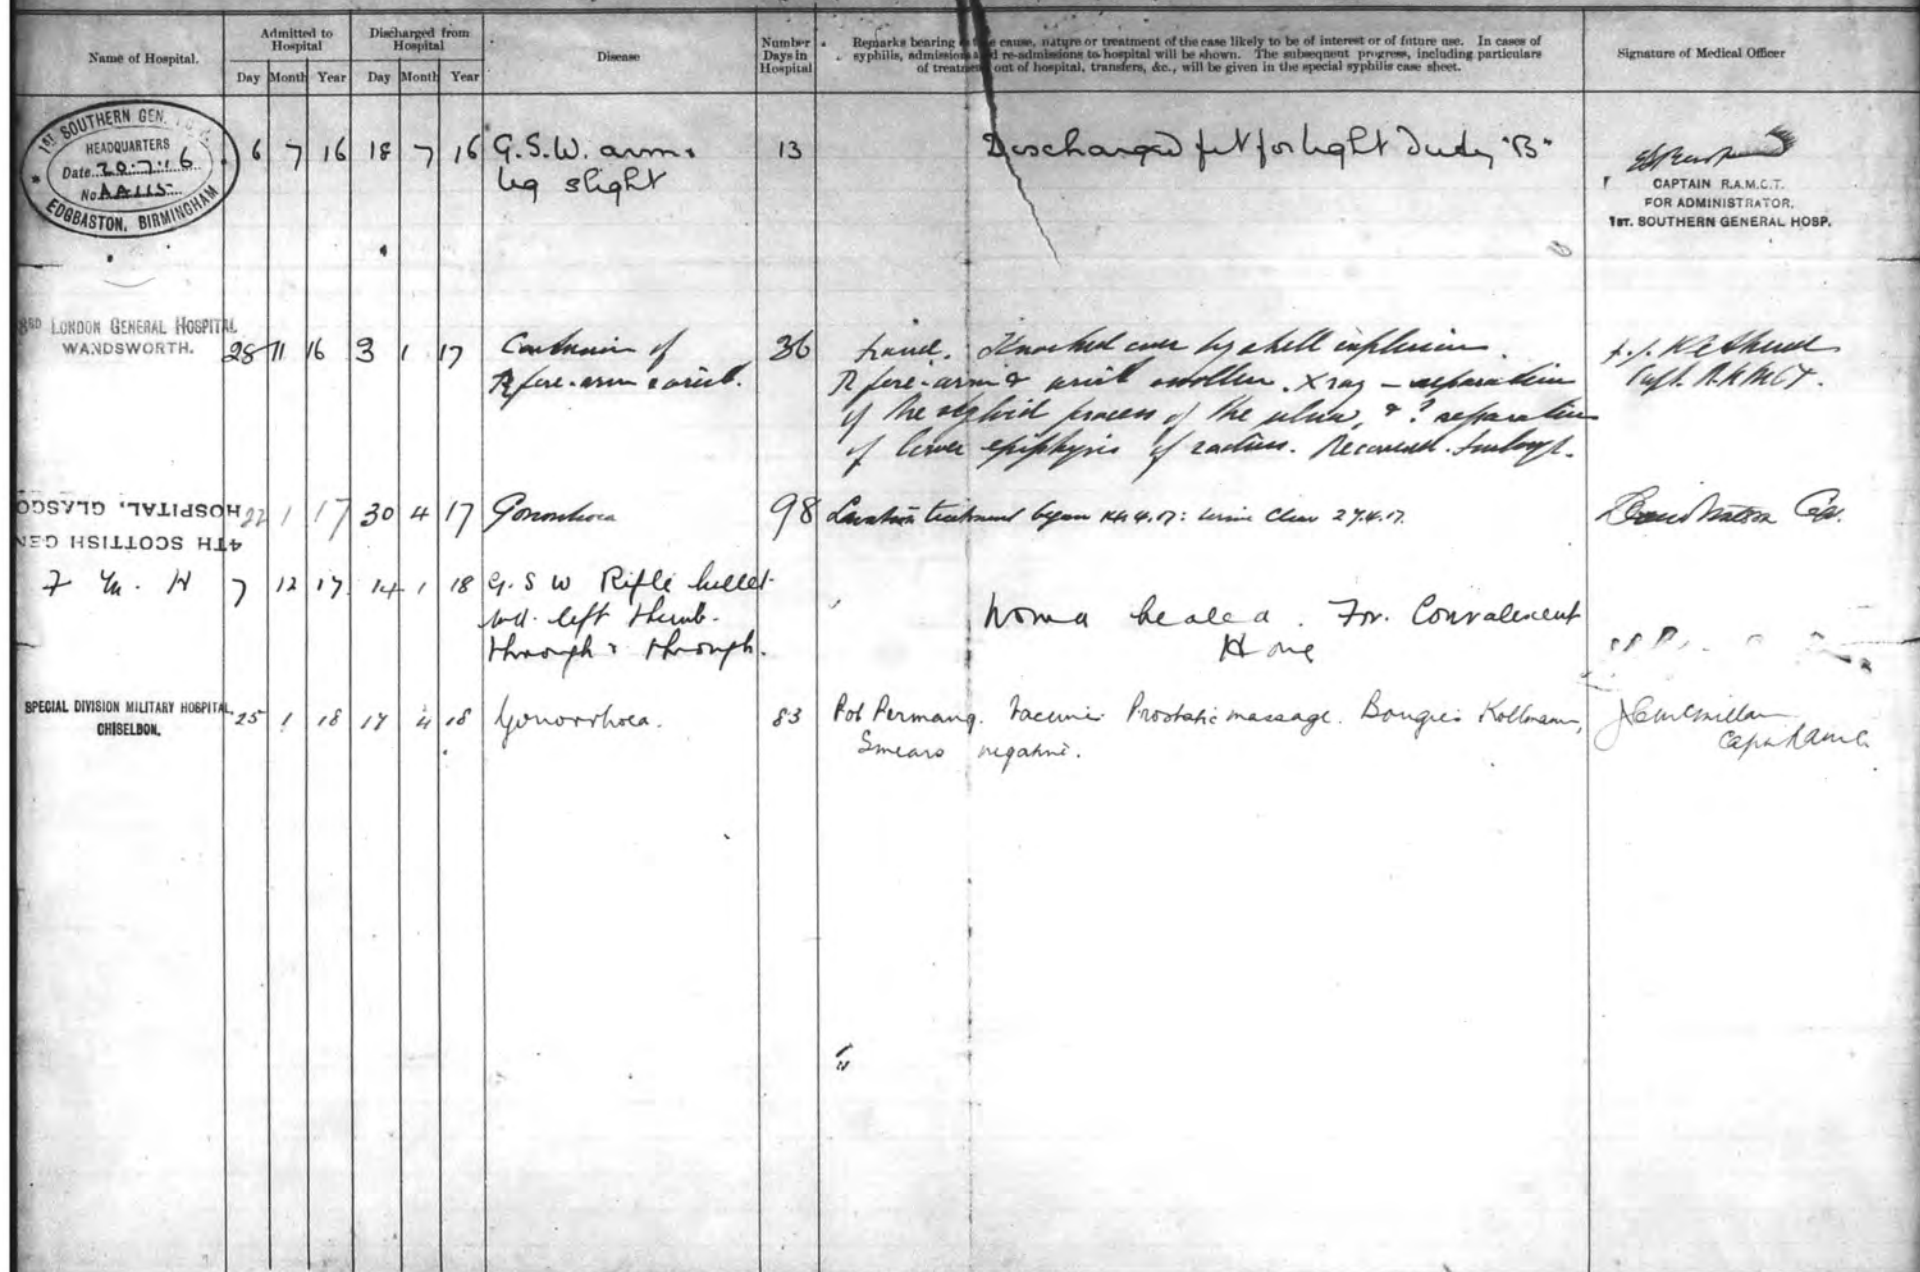 Name of Hospital.
Admitted to Hospital
Day Month Year
Discharged from Hospital
Day Month Year
Disease
Number Days in Hospital
Remarks bearing the cause, nature or treatment of the case likely to be of interest or of future use. In cases of
syphilis, admissions and re-admissions to hospital will be shown. The subsequent progress, including particulars
of treatment out of hospital, transfers, &c., will be given in the special syphilis case sheet.
Signature of Medical Officer
1ST SOUTHERN GEN.
HEADQUARTERS
Date 20.7.16
No AA115
EDGBASTON, BIRMINGHAM
6 7 16 18 7 16 G.S.W. arm & 13 Discharged fit for light Duty "B"
leg slight
CAPTAIN R.A.M.C.T.
FOR ADMINISTRATOR,
1ST. SOUTHERN GENERAL HOSP.
3RD LONDON GENERAL HOSPITAL
WANDSWORTH.
28 11 16 3 1 17 Contusion of 36 Knocked over by shell explosion.
R fore-arm & wrist. R fore-arm & wrist swollen. X ray – separation
of the styloid process of the ulna, & ? separation
of lower epiphysis of radius. Recovered. Furlough.
Capt. R.A.M.C.T.
4TH SCOTTISH GEN
HOSPITAL, GLASGO
22 1 17 30 4 17 Gonorrhoea 98 treatment began 4.17: urine clear 27.4.17.
Watson Cap.
7 12 17 14 1 18 G.S W Rifle bullet
wd. left thumb.
through & through.
Wound healed. For Convalescent
Home
SPECIAL DIVISION MILITARY HOSPITAL,
CHISELDON.
25 1 18 17 4 18 Gonorrhoea. 83 Pot Permang. Vaccine Prostatic massage. Bougies Kollmann,
Smears negative.
Capt RAMC